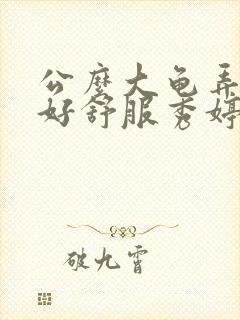 公麽大龟弄
好舒服秀婷
破九霄